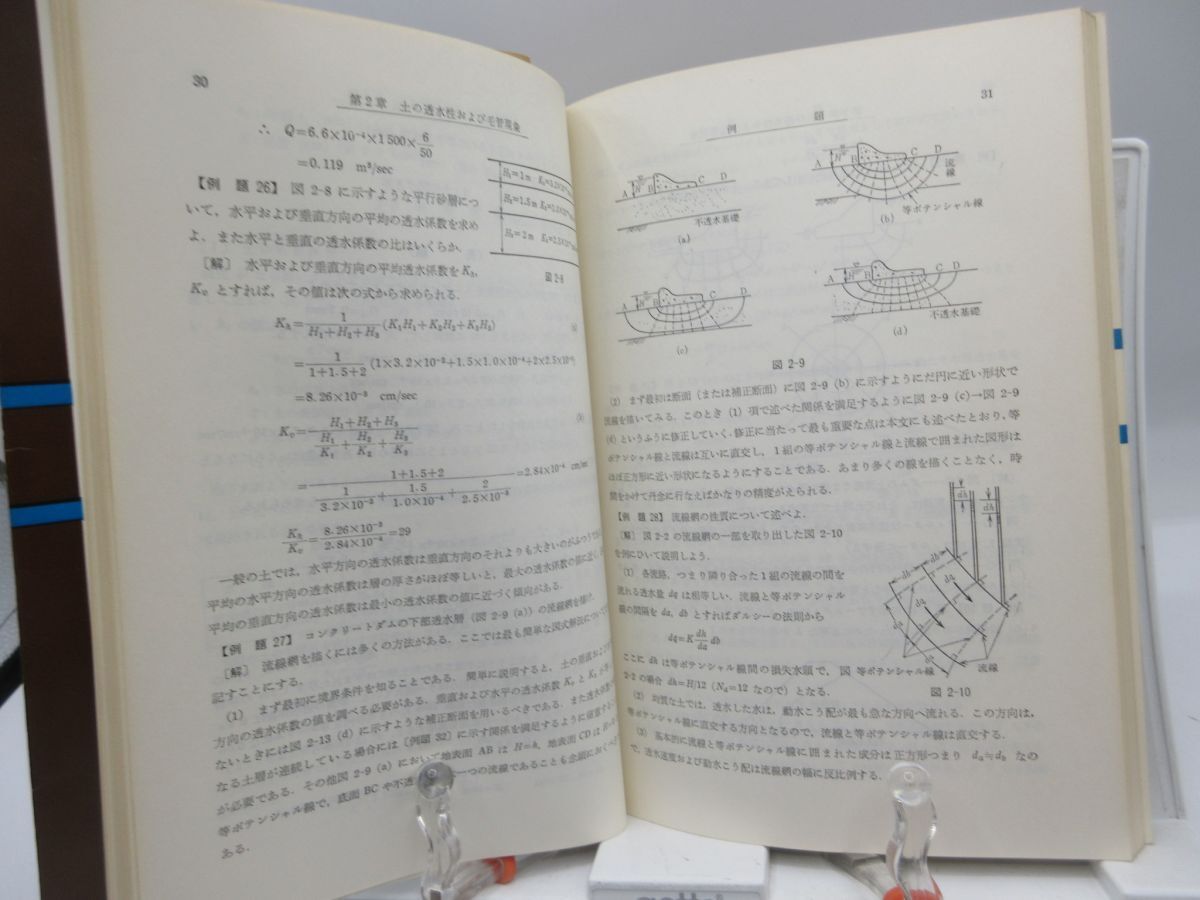 30
第2章 土の透水性および毛管現象
∴ Q=6.6×10⁻⁴×1500×6/50
=0.119 m³/sec
【例 題 26】 図 2-8 に示すような平行砂層につ
いて，水平および垂直方向の平均の透水係数を求め
よ．また水平と垂直の透水係数の比はいくらか．
〔解〕 水平および垂直方向の平均透水係数を Kh,
Kv とすれば，その値は次の式から求められる．
H₁=1m
H₂=1.5m
H₃=2m
図 2-8
Kh=1/(H₁+H₂+H₃)(K₁H₁+K₂H₂+K₃H₃)
=1/(1+1.5+2)(1×3.2×10⁻²+1.5×1.0×10⁻⁴+2×2.5×10⁻³)
=8.26×10⁻³ cm/sec
Kv=(H₁+H₂+H₃)/(H₁/K₁+H₂/K₂+H₃/K₃) (b)
=(1+1.5+2)/(1/(3.2×10⁻²)+1.5/(1.0×10⁻⁴)+2/(2.5×10⁻³))=2.84×10⁻⁴ cm/sec
Kh/Kv=(8.26×10⁻³)/(2.84×10⁻⁴)=29
一般の土では，水平方向の透水係数は垂直方向のそれよりも大きいのがふつうで
平均の水平方向の透水係数は層の厚さがほぼ等しいと，最大の透水係数の値に近く，
平均の垂直方向の透水係数は最小の透水係数の値に近づく傾向がある．
【例 題 27】 コンクリートダムの下部透水層（図 2-9 (a)）の流線網を描け．
〔解〕 流線網を描くには多くの方法がある．ここでは最も簡単な図式解法について
記すことにする．
(1) まず最初に境界条件を知ることである．簡単に説明すると，土の垂直および
方向の透水係数の値を調べる必要がある．垂直および水平の透水係数 Kv と Kh が等
ないときには図 2-13 (d) に示すような補正断面を用いるべきである．また透水係数
なる土層が連続している場合には〔例題 32〕に示す関係を満足するように留意する
が必要である．その他図 2-9 (a) において地表面 AB は H=h，地表面 CD は
等ポテンシャル線で，底面 BC や不透 一つの流線であることも念頭におくべ
ある．
31
例 題
A B C D
不透水基礎
(a)
A B C D
流線
等ポテンシャル線
(b)
A B C D
(c)
A B C D
不透水基礎
(d)
図 2-9
(2) まず最初は断面（または補正断面）に図 2-9 (b) に示すようにだ円に近い形状で
流線を描いてみる．このとき (1) 項で述べた関係を満足するように図 2-9 (c)→図 2-9
(d) というふうに修正していく．修正に当たって最も重要な点は本文にも述べたとおり，等
ポテンシャル線と流線は互いに直交し，1組の等ポテンシャル線と流線で囲まれた図形は
ほぼ正方形に近い形状になるようにすることである．あまり多くの線を描くことなく，時
間をかけて丹念に行なえばかなりの精度がえられる．
【例 題 28】 流線網の性質について述べよ．
〔解〕 図 2-2 の流線網の一部を取り出した図 2-10
を例にひいて説明しよう．
(1) 各流路，つまり隣り合った1組の流線の間を
流れる透水量 dq は相等しい．流線と等ポテンシャル
線の間隔を da, db とすればダルシーの法則から
dq=K dh/da db
ここに dh は等ポテンシャル線間の損失水頭で，図
2-2 の場合 dh=H/12 (Nd=12 なので) となる．
dh
dh
db
da
da
dq
等ポテンシャル線
流線
図 2-10
(2) 均質な土では，透水した水は，動水こう配が最も急な方向へ流れる．この方向は，
等ポテンシャル線に直交する方向となるので，流線と等ポテンシャル線は直交する．
(3) 基本的に流線と等ポテンシャル線に囲まれた成分は正方形つまり da≒db なの
で，透水速度および動水こう配は流線網の幅に反比例する．